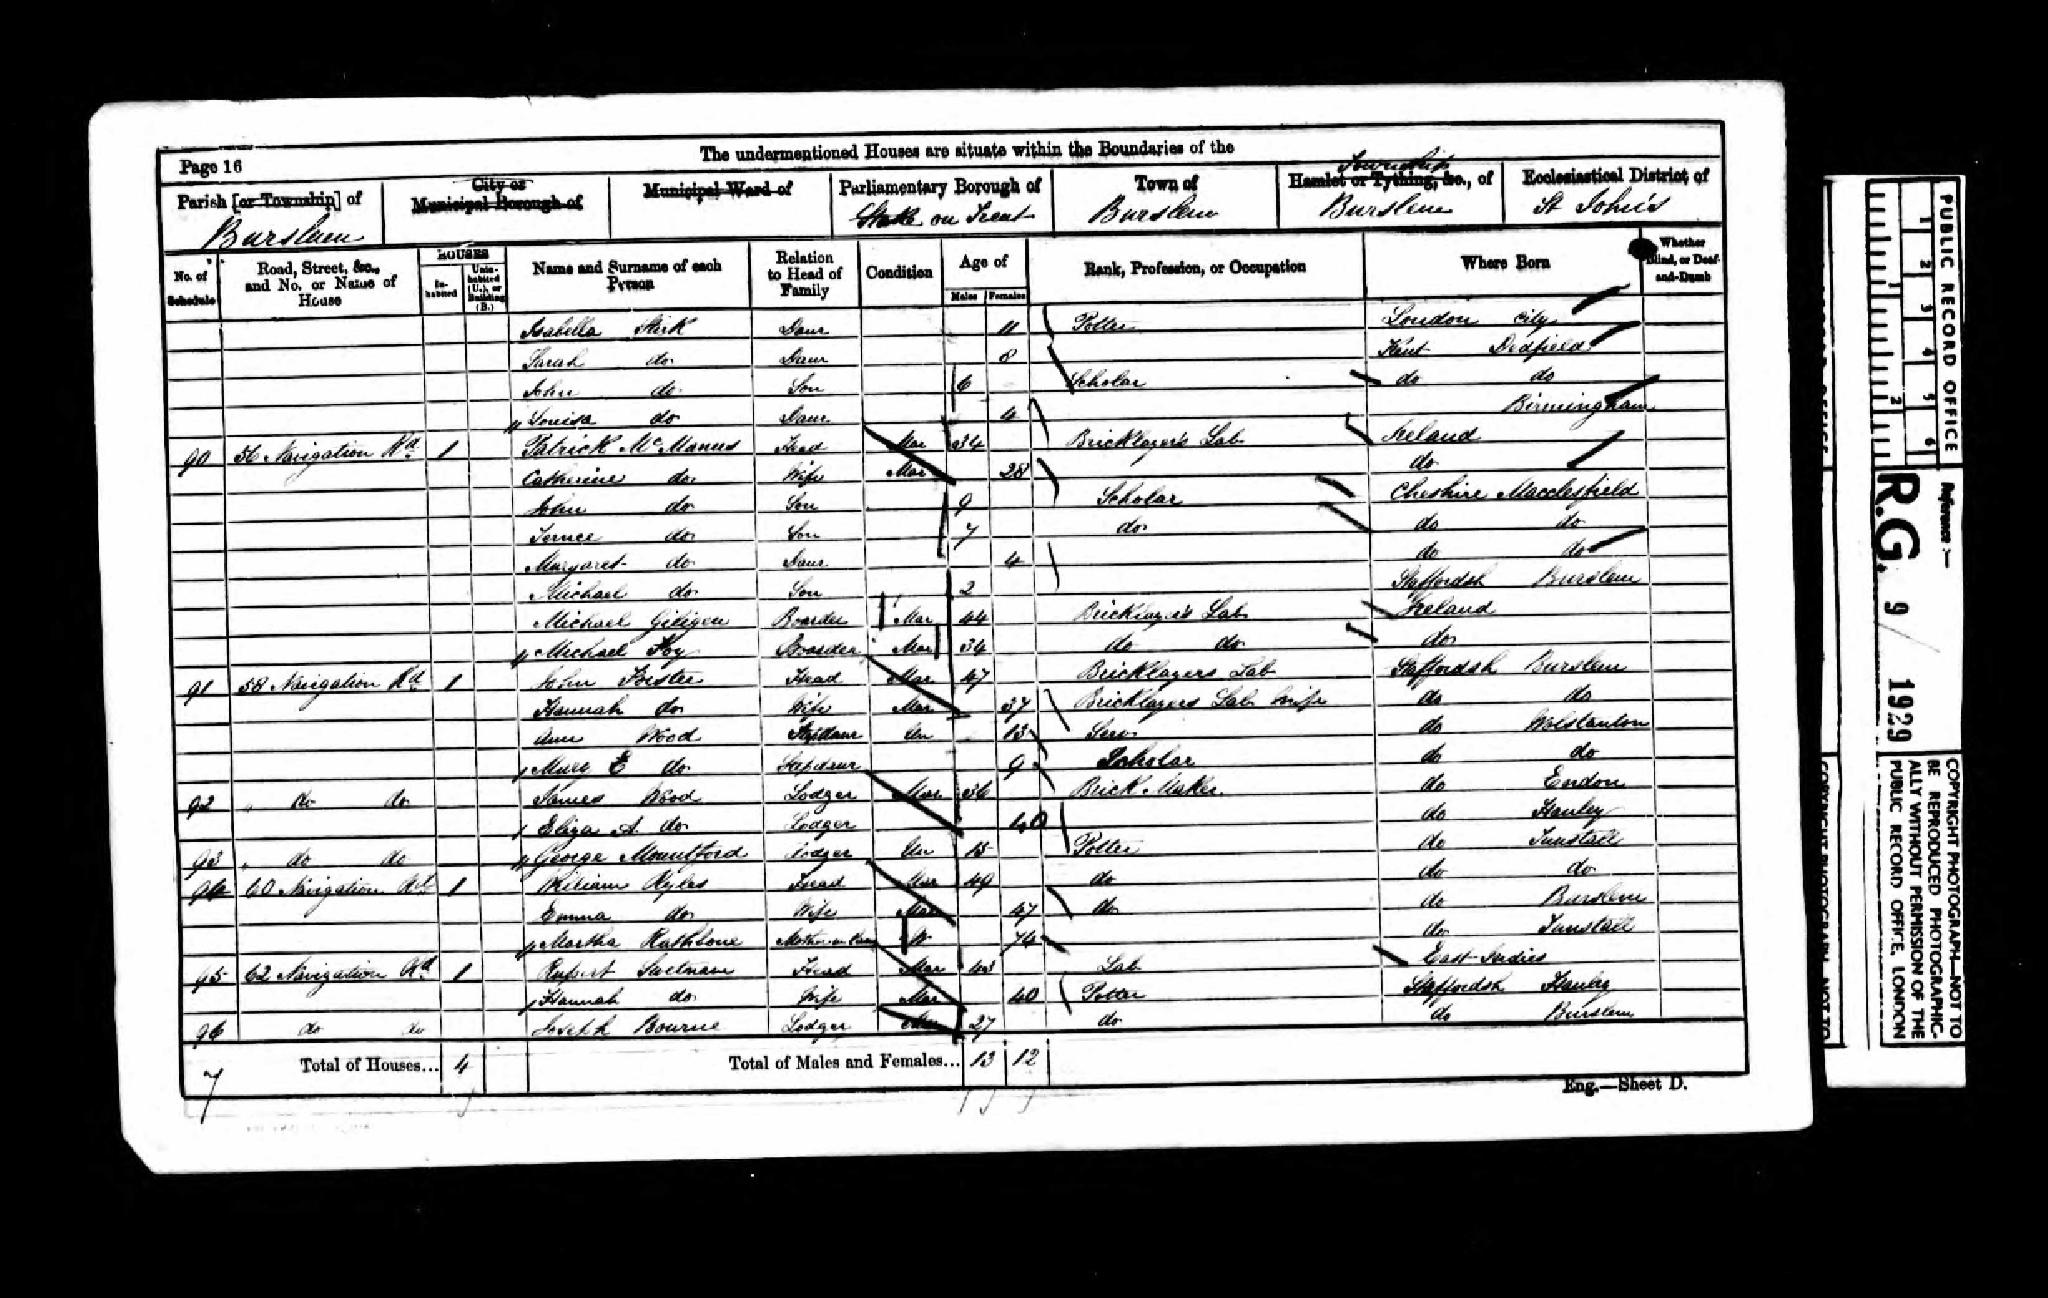 Page 16
The undermentioned Houses are situate within the Boundaries of the
Parish [or Township] of
Burslem
City or
Municipal Borough of
Municipal Ward of
Parliamentary Borough of
Stoke on Trent
Town of
Burslem
Township
Hamlet or Tything, &c., of
Burslem
Ecclesiastical District of
St John's
No. of Schedule
Road, Street, &c., and No. or Name of House
HOUSES
In-habited
Unin-habited (U.), or Building (B.)
Name and Surname of each Person
Relation to Head of Family
Condition
Age of
Males
Females
Rank, Profession, or Occupation
Where Born
Whether Blind, or Deaf-and-Dumb
Isabella Daur 11 Potter London City
Sarah do Daur 8 Kent
John do Son 6 Scholar do do
Louisa do Daur 4 Birmingham
90 56 Navigation Rd 1 Patrick McManus Head Mar 34 Bricklayer's Lab Ireland
Catherine do Wife Mar 28 do
John do Son 9 Scholar Cheshire Macclesfield
Terence do Son 7 do do do
Margaret do Daur 4 do do
Michael do Son 2 Staffordsh Burslem
Michael Boarder Mar 44 Bricklayer's Lab Ireland
Michael Foy Boarder Mar 34 do do do
91 58 Navigation Rd 1 John Head Mar 47 Bricklayers Lab Staffordsh Burslem
Hannah do Wife Mar 37 Bricklayers Lab Wife do do
Ann Wood Stepdaur Un 13 Serv do Wolstanton
Mary E do Stepdaur 9 Scholar do do
92 " do do James Wood Lodger Mar 36 Brick Maker do Endon
Eliza A. do Lodger 40 do Hanley
93 " do do George Mountford Lodger Un 15 Potter do Tunstall
94 60 Navigation Rd 1 William Ryles Head Mar 49 do do do
Emma do Wife Mar 47 do do Burslem
Martha Rathbone Mother-in-law W 74 do Tunstall
95 62 Navigation Rd 1 Rupert Head Mar 43 Lab East Indies
Hannah do Wife Mar 40 Potter Staffordsh Hanley
96 do do Joseph Bourne Lodger 27 do do Burslem
Total of Houses... 4
Total of Males and Females... 13 12
7
Eng.—Sheet D.
PUBLIC RECORD OFFICE
1 2 3 4 5 6
1 2
Reference :—
R.G. 9 / 1929
COPYRIGHT PHOTOGRAPH—NOT TO
BE REPRODUCED PHOTOGRAPHIC-
ALLY WITHOUT PERMISSION OF THE
PUBLIC RECORD OFFICE, LONDON